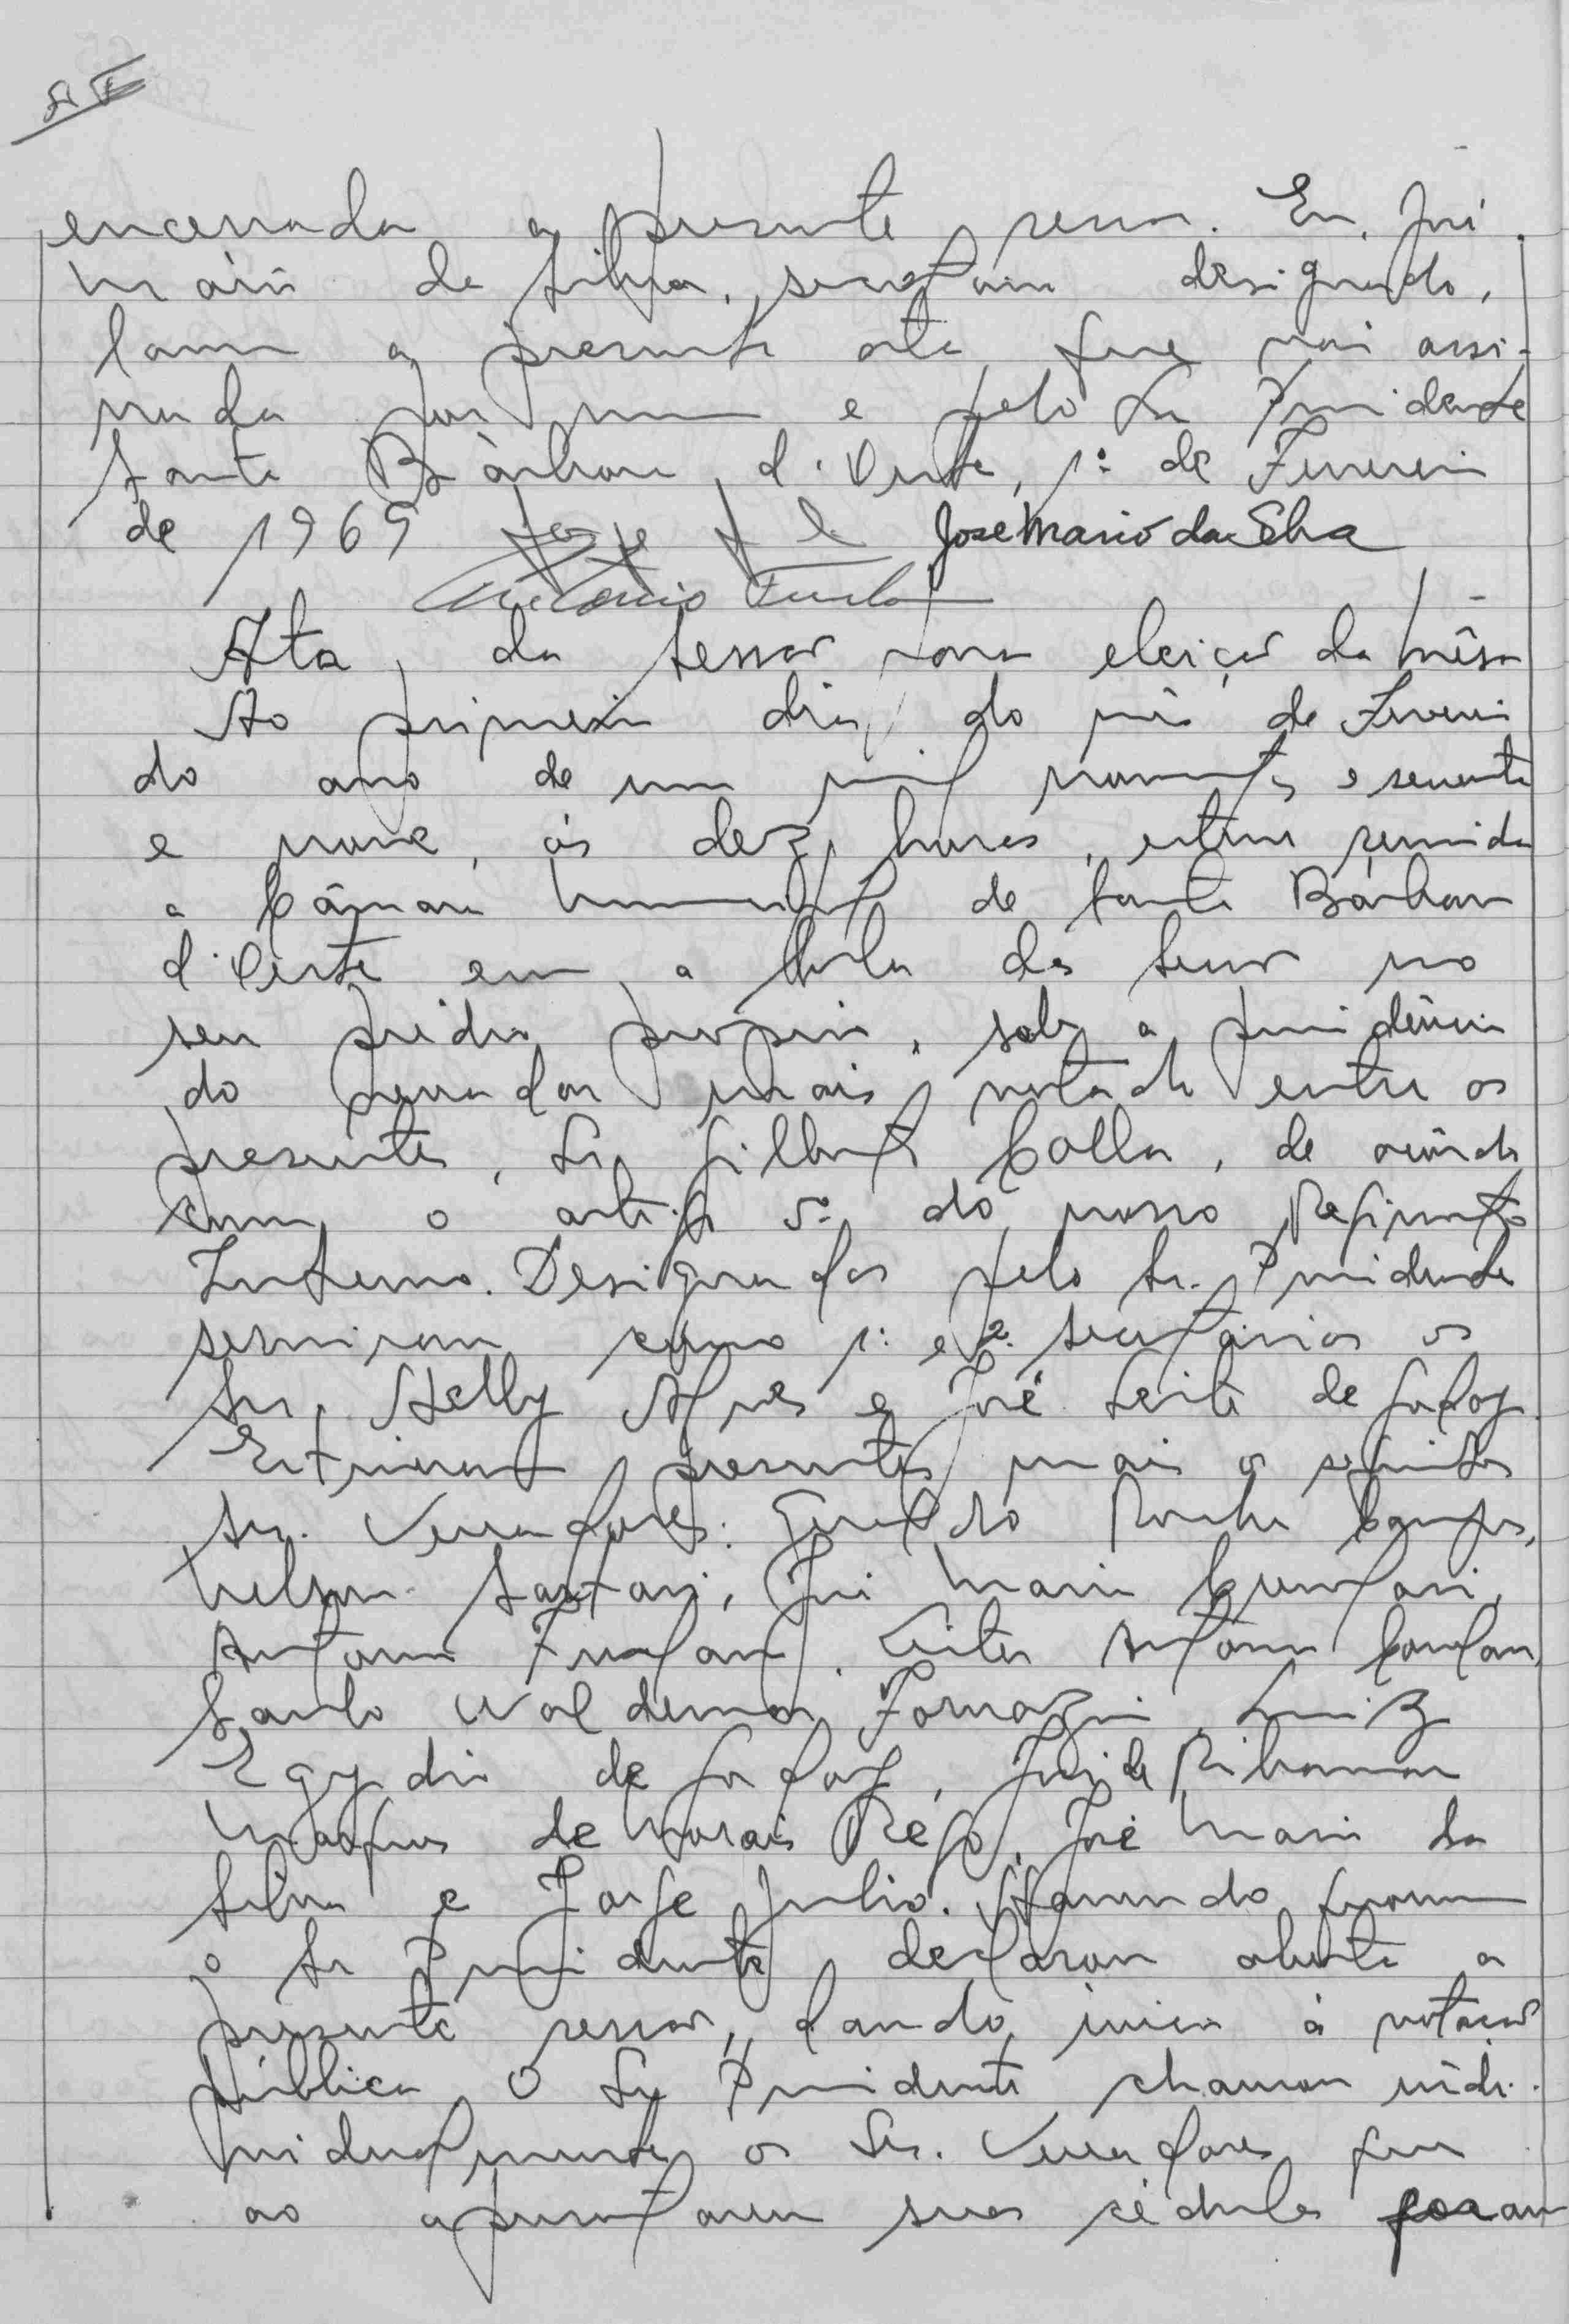 encerrada a presente sessão. Eu, José
Mário da Silva, secretário designado,
lavrei a presente ata, que vai assi-
nada por mim e pelo Sr. Presidente
Santa Bárbara d'Oeste, 1º de Fevereiro
de 1969 José Mario da Silva
Antonio Furlan
Ata da sessão para eleição da Mêsa
Ao primeiro dia do mês de Fevereiro
do ano de um mil novecentos e sessenta
e nove, às dez horas, esteve reunida
a Câmara Municipal de Santa Bárbara
d'Oeste em a Sala das Sessões no
seu prédio proprio, sob a presidência
do vereador mais votado entre os
presentes, Sr. Gilberto Colla, de acôrdo
com o artigo 5º do nosso Regimento
Interno. Designados pelo Sr. Presidente
serviram como 1º e 2º secretários os
Srs. Helly Alves e José Leite de Godoy.
Estiveram presentes mais os seguintes
Srs. Vereadores: Geraldo Rocha Campos,
Nelson Sartori, José Maria
Antonio Furlan, Antonio
Paulo Waldemar Fornazin, Luiz
Egydio de Godoy, José de Ribamar
Marques de Morais Rêgo, José Mario da
Silva e Jorge Julio. Havendo quorum
o Sr. Presidente declarou aberta a
presente sessão, dando início à votação
pública. O Sr. Presidente chamou indi-
vidualmente os Srs. Vereadores que
ao apresentarem suas cédulas foram